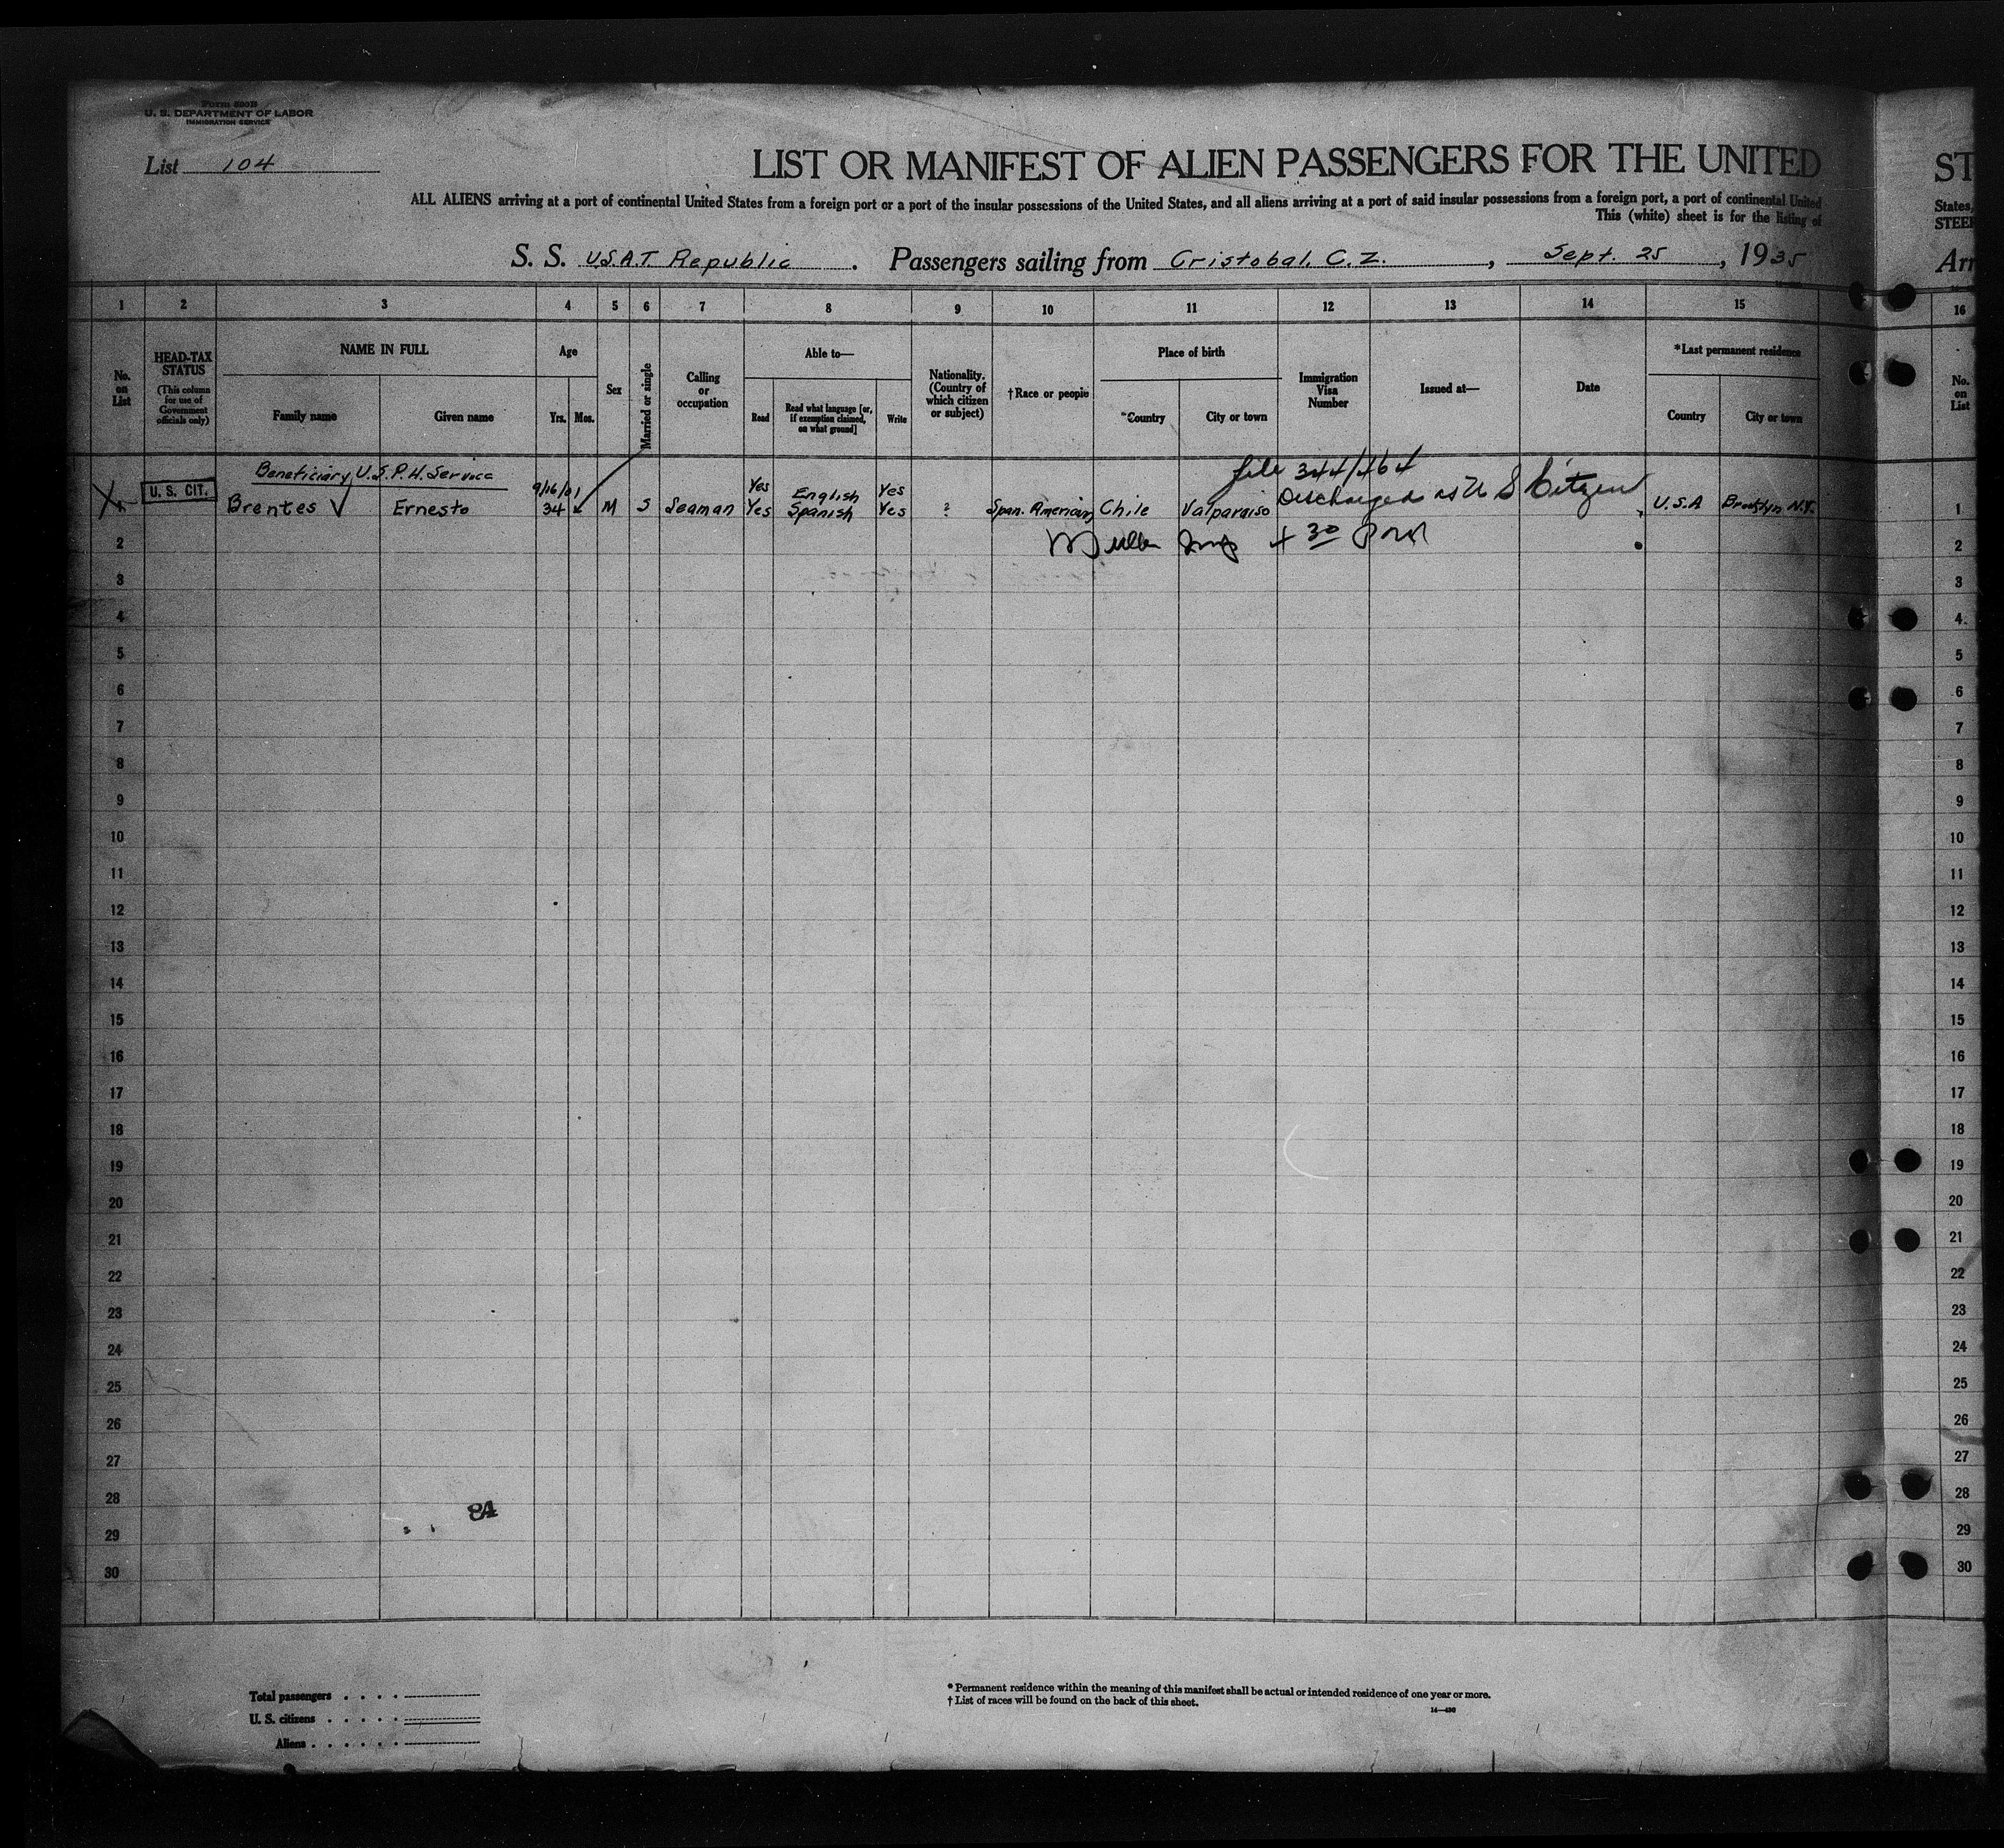 Form 500B
U. S. DEPARTMENT OF LABOR
IMMIGRATION SERVICE
List 104
LIST OR MANIFEST OF ALIEN PASSENGERS FOR THE UNITED
ST
ALL ALIENS arriving at a port of continental United States from a foreign port or a port of the insular possessions of the United States, and all aliens arriving at a port of said insular possessions from a foreign port, a port of continental United
States,
This (white) sheet is for the listing of
STEE
S. S. U.S.A.T. Republic . Passengers sailing from Cristobal, C.Z. , Sept. 25 , 1935
Arr
1 2 3 4 5 6 7 8 9 10 11 12 13 14 15 16
No. on List
HEAD-TAX STATUS
(This column for use of Government officials only)
NAME IN FULL
Family name
Given name
Age
Yrs. Mos.
Sex
Married or single
Calling or occupation
Able to—
Read
Read what language [or, if exemption claimed, on what ground]
Write
Nationality. (Country of which citizen or subject)
†Race or people
Place of birth
Country
City or town
Immigration Visa Number
Issued at—
Date
*Last permanent residence
Country
City or town
No. on List
Beneficiary U.S.P.H. Service
file 344/464
U. S. CIT.
9/16/01
Yes English Yes
Discharged as U S Citizen
1 Brentes Ernesto 34 M S Seaman Yes Spanish Yes ? Span. American Chile Valparaiso U.S.A Brooklyn N.Y. 1
2 + 30 2
3 3
4 4
5 5
6 6
7 7
8 8
9 9
10 10
11 11
12 12
13 13
14 14
15 15
16 16
17 17
18 18
19 19
20 20
21 21
22 22
23 23
24 24
25 25
26 26
27 27
28 84 28
29 29
30 30
Total passengers
U. S. citizens
Aliens
* Permanent residence within the meaning of this manifest shall be actual or intended residence of one year or more.
† List of races will be found on the back of this sheet.
14—430